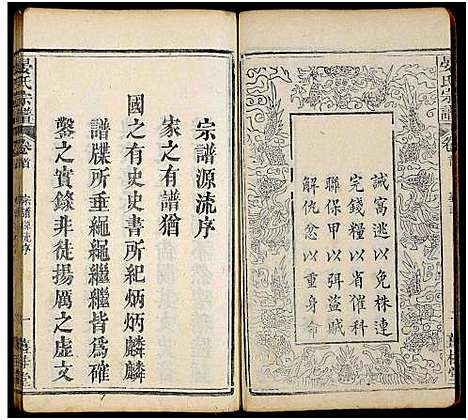 晏氏宗譜
誠窩逃以免株連
完錢糧以省催科
聯保甲以弭盜賊
解仇忿以重身命
宗譜源流序
家之有譜猶
國之有史史書所紀炳炳麟麟
譜牒所垂繩繩繼繼皆為確
鑿之實錄非徒揚厲之虛文
晏氏宗譜
卷首
宗譜源流序
一